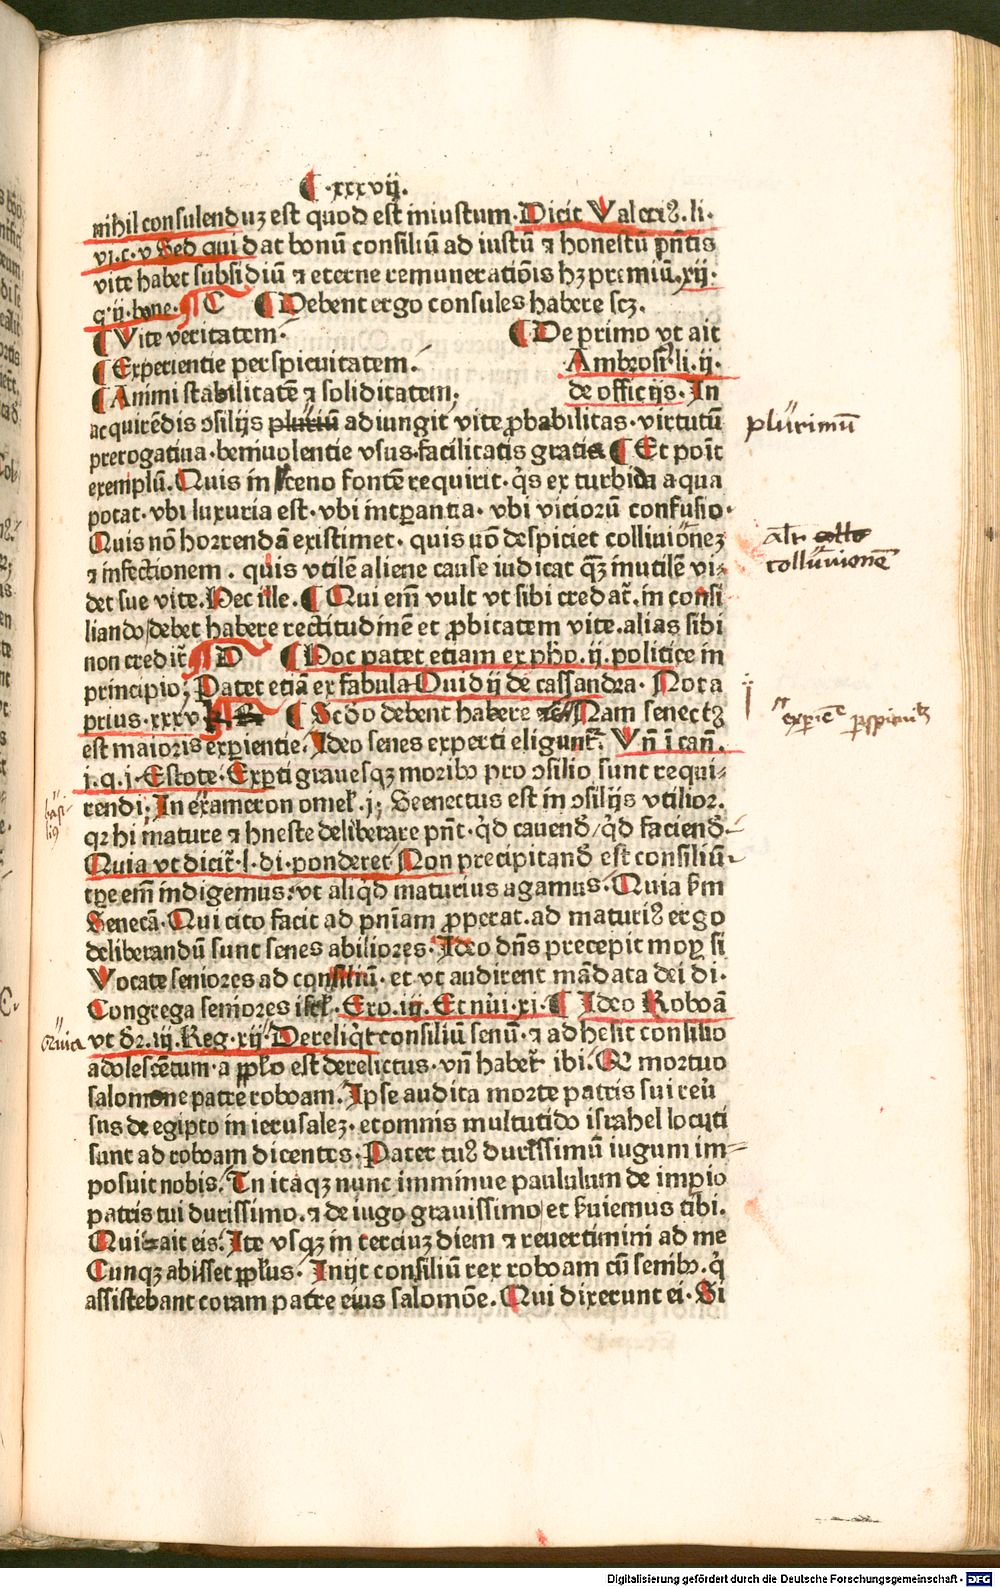 ¶ ·xxxvij.
nihil consulenduz est quod est iniustum. Dicit Valeriꝰ. li.
vi.c.v Sed qui dat bonū consiliū ad iustū ⁊ honestū p̄ntis
vite habet subsidiū ⁊ eterne remuneratiōis hꝫ premiū. xij.
q. ij. bone. ¶ C ¶ Debent ergo consules habere scꝫ.
¶ Vite veritatem.
¶ De primo vt ait
¶ Experientie perspicuitatem.
Ambrosiꝰ li. ij.
¶ Animi stabilitatē ⁊ soliditatem;
de officijs. In
acquirēdis ꝯsilijs pluriū adiungit vite ꝓbabilitas. virtutū
plurimū
prerogatiua. beniuolentie vsus. facilitatis gratia ¶ Et poīt
exemplū. Quis in ceno fontē requirit. q̇s ex turbida aqua
potat. vbi luxuria est. vbi intꝑantia. vbi viciorū confusio.
Quis nō horrendā existimet. quis nō despiciet colliuionez
alr̄
colluuionē
⁊ infectionem. quis vtilē aliene cause iudicat q̄ꝫ inutilē vi-
det sue vite. Hec ille. ¶ Qui em̄ vult vt sibi credat̄. in consi
liando debet habere rectitudinē et ꝓbitatem vite. alias sibi
non credit̄ ¶ D ¶ Hoc patet etiam ex pho. ij. politice in
principio; Patet etiā ex fabula Ouidij de cassandra. Nota
prius. xxxv ¶ Scd̄o debent habere Nam senectꝫ
exꝑiētie ꝑspicuitatē
est maioris exꝑientie. Ideo senes experti eligunt̄. Vn̄ ī can̄.
j. q. j. Estote. Exꝑti grauesqꝫ moribꝰ pro ꝯsilio sunt requi-
rendi. In exameron omel. j; Seenectus est in ꝯsilijs vtilior.
basilius
qꝛ hi mature ⁊ hneste deliberare pn̄t. q̇d cauend̄/ q̇d faciend̄.
Quia vt dicit̄. l. di. ponderet Non precipitand̄ est consiliū.
tꝑe em̄ indigemus. vt aliq̇d maturius agamus. Quia ẜm
Senecā. Qui cito facit ad pn̄iam ꝓperat. ad maturiꝰ ergo
deliberandū sunt senes abiliores. Ideo dn̄s precepit moysi
Vocate seniores ad consiliū. et vt audirent mādata dei di.
Congrega seniores isrl. Exo. iij. Et nūi. xi. ¶ Ideo Roboā
vt dr̄. iij. Reg. xij. Dereliq̇t consiliū senū. ⁊ adhesit consilio
adolescētum. a ppl'o est derelictus. vn̄ habet̄ ibi. Qꝫ mortuo
salomone patrē roboam. Ipse audita morte patris sui reū
sus de egipto in ierusalez. et omnis multutido israhel locuti
sunt ad roboam dicentes. Pater tuꝰ durissimū iugum im-
posuit nobis. Tu itaqꝫ nunc imminue paululum de imꝑio
patris tui durissimo. ⁊ de iugo grauissimo et ẜuiemus tibi.
Qui ait eis. Ite vsqꝫ in terciuz diem ⁊ reuertimini ad me
Cunqꝫ abisset ppl's. Inijt consiliū rex roboam cū senibꝰ. q̇
assistebant coram patre eius salomōe. Qui dixerunt ei. Si
Digitalisierung gefördert durch die Deutsche Forschungsgemeinschaft - DFG